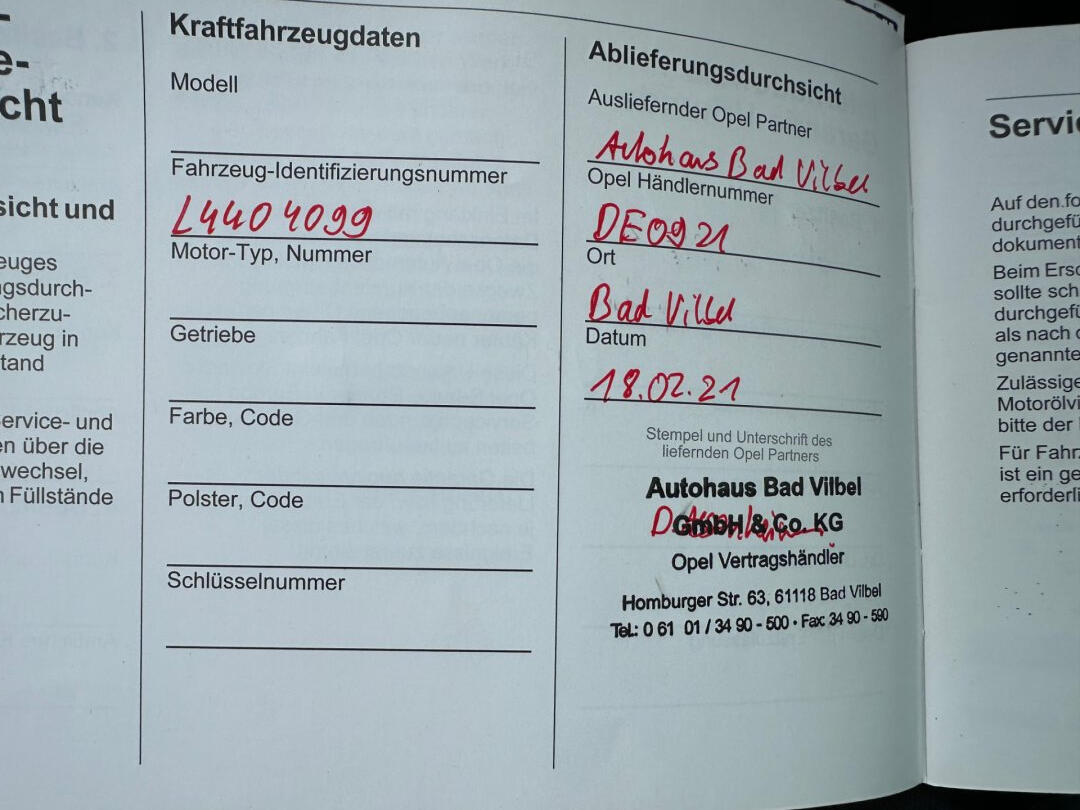 e-
cht
sicht und
euges
ngsdurch-
cherzu-
rzeug in
tand
Service- und
en über die
wechsel,
n Füllstände
Kraftfahrzeugdaten
Modell
Fahrzeug-Identifizierungsnummer
L4404099
Motor-Typ, Nummer
Getriebe
Farbe, Code
Polster, Code
Schlüsselnummer
Ablieferungsdurchsicht
Ausliefernder Opel Partner
Autohaus Bad Vilbel
Opel Händlernummer
DE0921
Ort
Bad Vilbel
Datum
18.02.21
Stempel und Unterschrift des
liefernden Opel Partners
Autohaus Bad Vilbel
GmbH & Co. KG
Opel Vertragshändler
Homburger Str. 63, 61118 Bad Vilbel
Tel.: 0 61 01 / 34 90 - 500 • Fax: 34 90 - 590
Servic
Auf den fo
durchgefü
dokument
Beim Ersc
sollte sch
durchgefü
als nach d
genannte
Zulässige
Motorölvi
bitte der
Für Fahrz
ist ein ge
erforderli